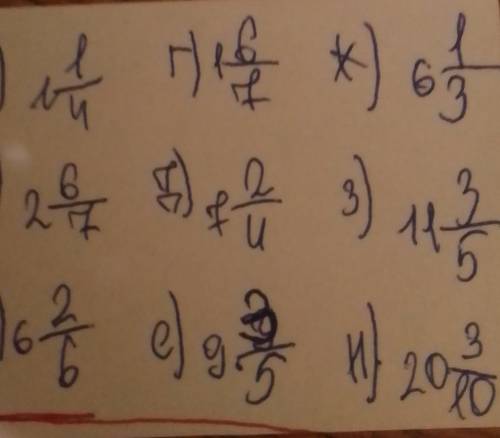 ) 1 1/4 г) 1 6/7 ж) 6 1/3
) 2 6/7 д) 7 2/4 з) 11 3/5
) 6 2/6 е) 9 /5 и) 20 3/10